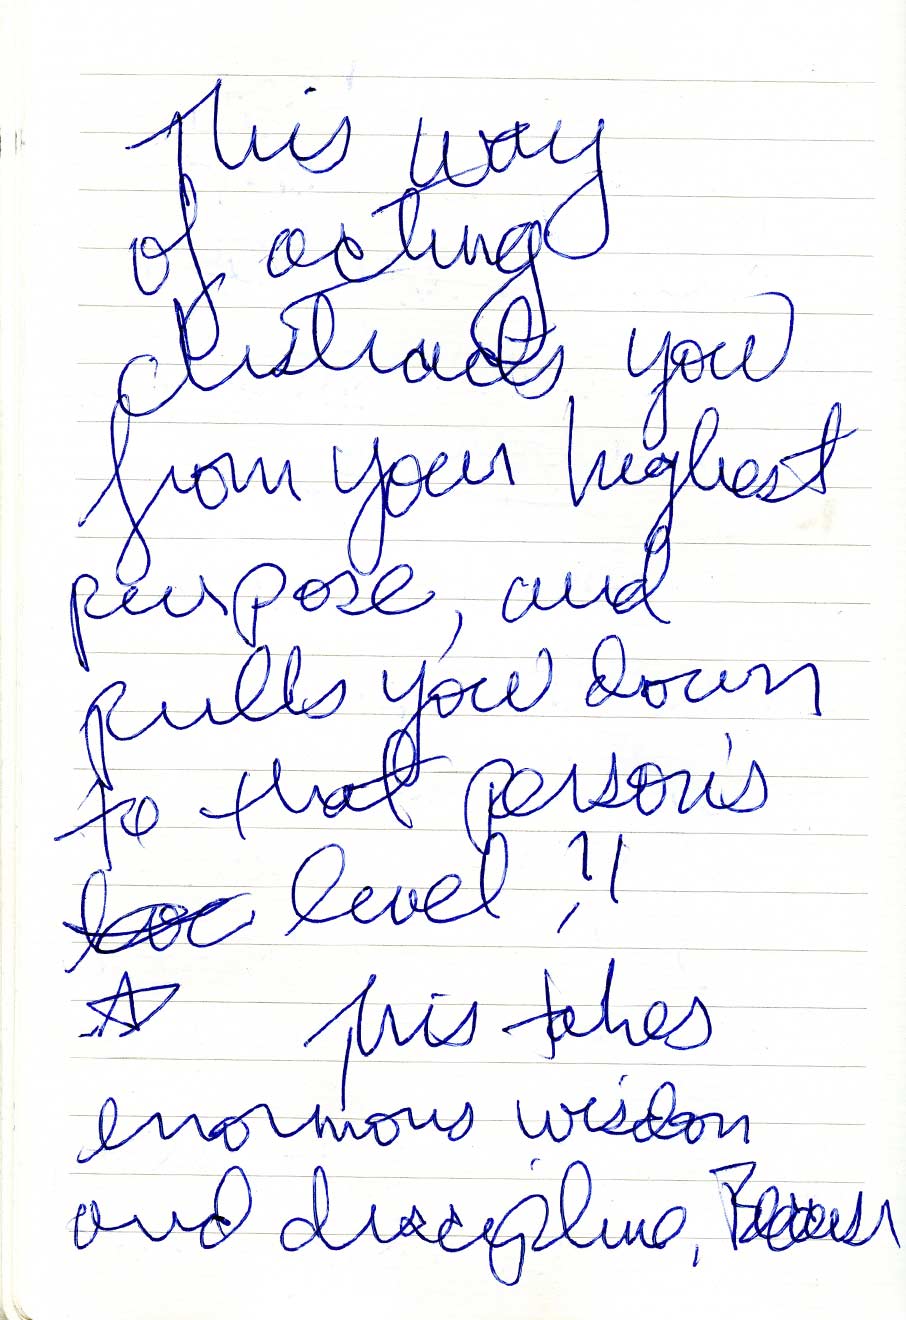 This way
of acting
distracts you
from your highest
purpose, and
pulls you down
to that person's
level!!
☆ This takes
enormous wisdom
and discipline, Because